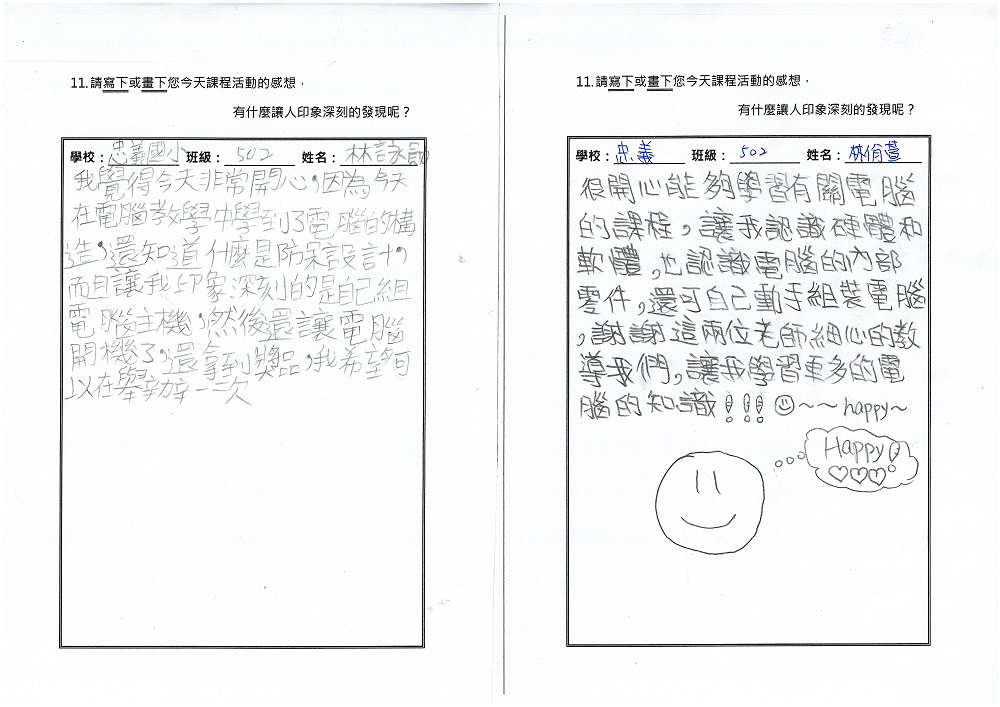 11.請寫下或畫下您今天課程活動的感想，
有什麼讓人印象深刻的發現呢？
學校：忠義國小 班級：502 姓名：林詠
我覺得今天非常開心，因為今天
在電腦教學中學到了電腦的構
造，還知道什麼是防呆設計，
而且讓我印象深刻的是自己組
電腦主機，然後還讓電腦
開機了，還拿到獎品，我希望可
以在舉辦一次
11.請寫下或畫下您今天課程活動的感想，
有什麼讓人印象深刻的發現呢？
學校：忠義 班級：502 姓名：林俏萱
很開心能夠學習有關電腦
的課程，讓我認識硬體和
軟體，也認識電腦的內部
零件，還可自己動手組裝電腦
，謝謝這兩位老師細心的教
導我們，讓我學習更多的電
腦的知識！！！～～happy～
Happy！